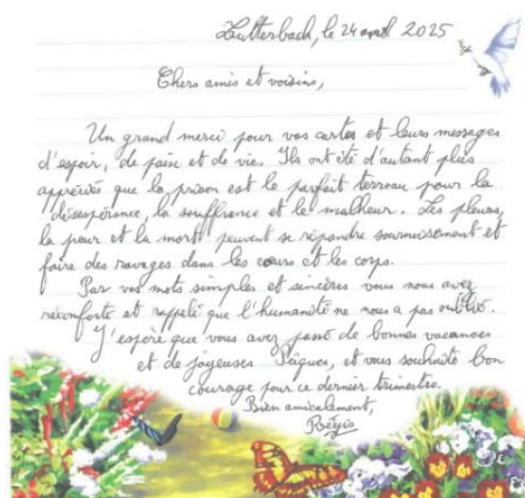 Lutterbach, le 24 avril 2025
Chers amis et voisins,
Un grand merci pour vos cartes et leurs messages
d'espoir, de paix et de vie. Ils ont été d'autant plus
appréciés que la prison est le parfait terreau pour la
désespérance, la souffrance et le malheur. Les pleurs,
la peur et la mort peuvent se répandre sournoisement et
faire des ravages dans les cœurs et les corps.
Par vos mots simples et sincères vous nous avez
réconforté et rappelé que l'humanité ne nous a pas oublié.
J'espère que vous avez passé de bonnes vacances
et de joyeuses Pâques, et vous souhaite bon
courage pour ce dernier trimestre.
Bien amicalement,
Régis